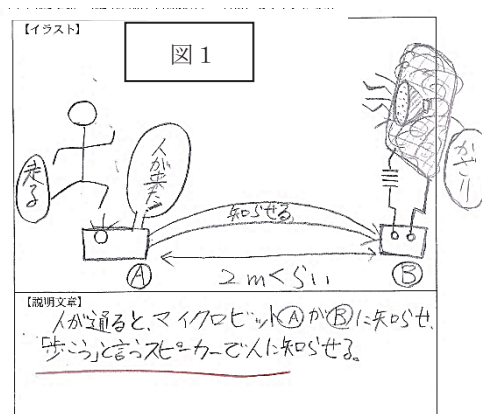 【イラスト】
図1
走る
人が来た
かざり
知らせる
2mくらい
Ⓐ
Ⓑ
【説明文章】
人が通ると、マイクロビットⒶがⒷに知らせ、
「歩こう」と言うスピーカーで人に知らせる。